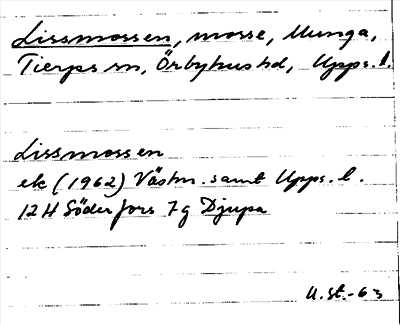 Lissmossen, mosse, Munga,
Tierps sn, Örbyhus hd, Upps. l.
Lissmossen
ek (1962) Västm. samt Upps. l.
12 H Söderfors 7g Djupa
U.st.-63